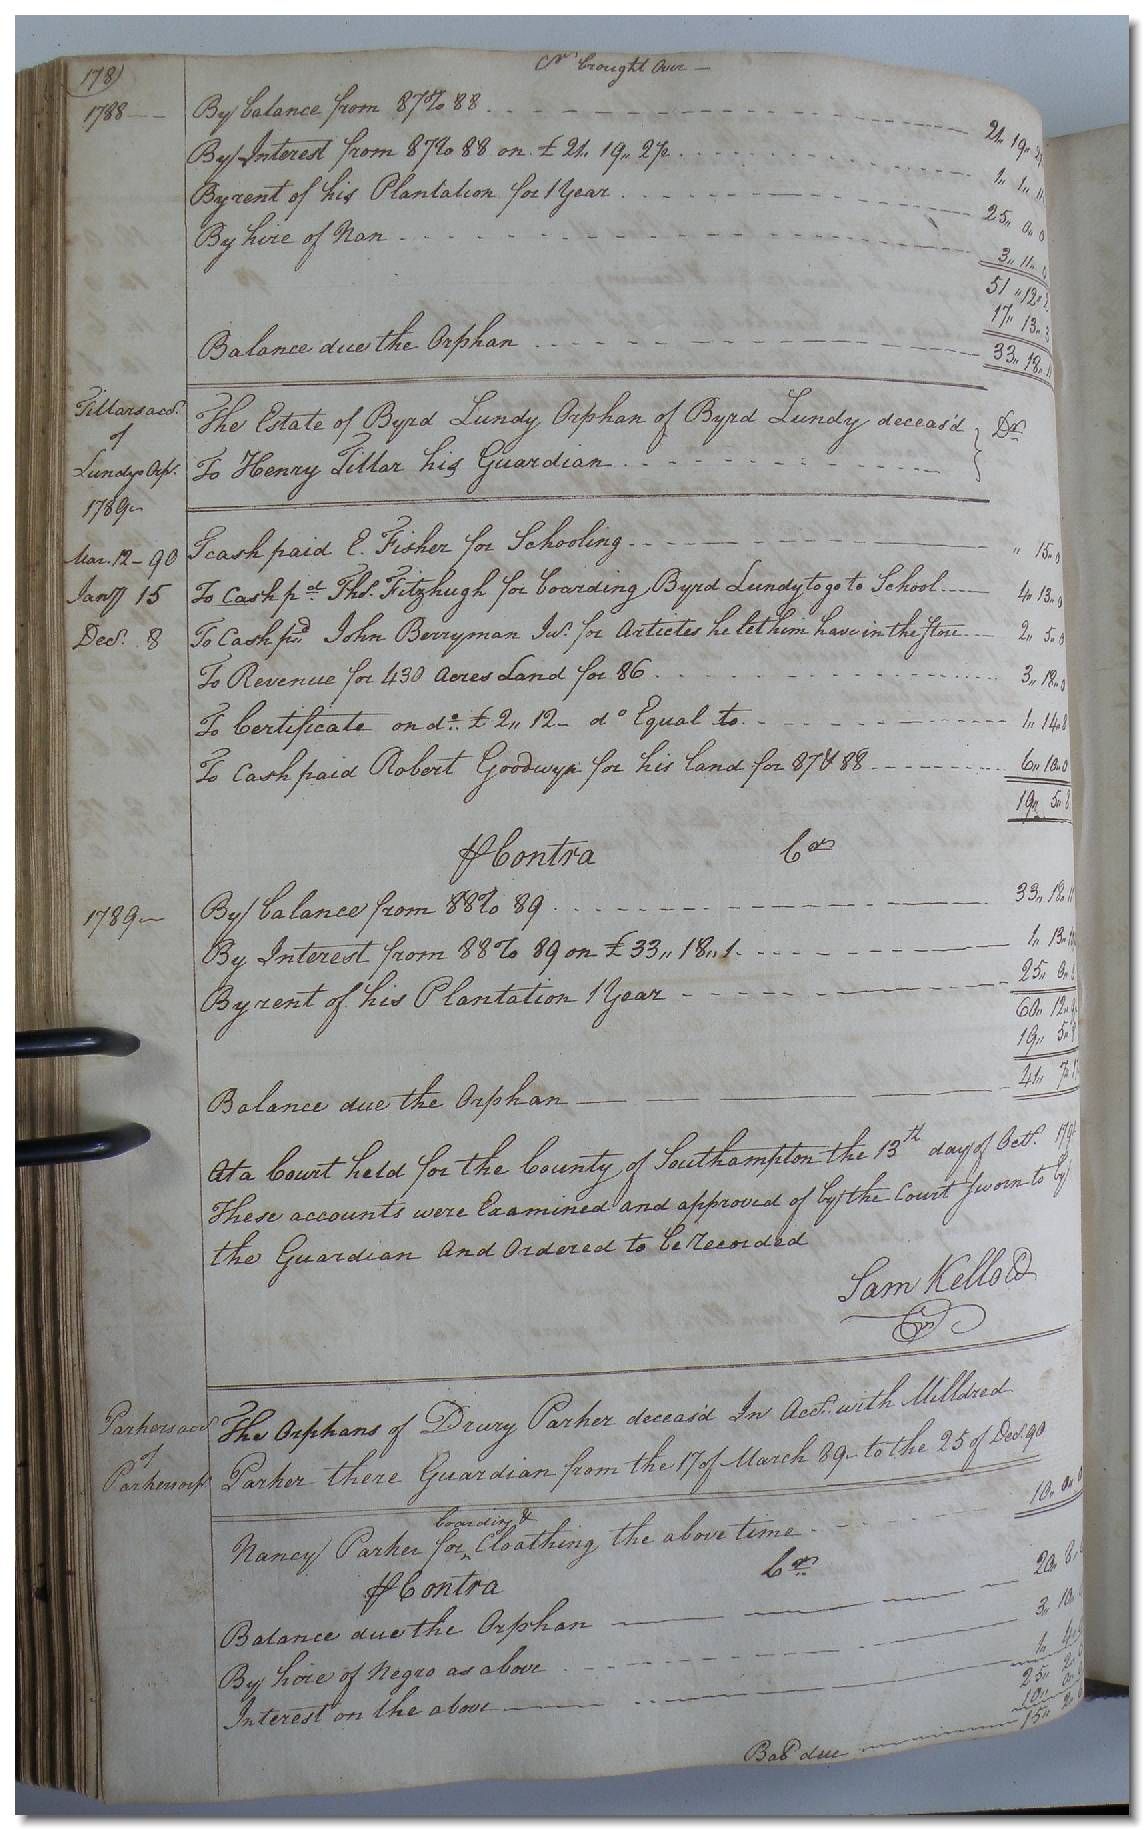 178)
Cr brought Over —
1788 — By balance from 87 to 88 21,, 19,, 2
By Interest from 87 to 88 on £ 21,, 19,, 2½ 1,, 1,, 11
By rent of his Plantation for 1 Year 25,, 0,, 0
By hire of Nan 3,, 11,, 0
51,, 12,, 2
17,, 13,, 3
Balance due the Orphan 33,, 18,, 11
Tillars acct. of Lundys Orp.
The Estate of Byrd Lundy Orphan of Byrd Lundy deceas'd } Dr.
To Henry Tillar his Guardian
1789
Mar. 12 – 90 To cash paid E. Fisher for Schooling ,, 15,, 0
Jany 15 To Cash pd. Ths. Fitzhugh for boarding Byrd Lundy to go to School 4,, 13,, 0
Decr. 8 To Cash pd. John Berryman Jur. for Articles he let him have in the Store 2,, 5,, 0
To Revenue for 430 Acres Land for 86 3,, 18,, 0
To Certificate on do. £ 2,, 12 – do Equal to 1,, 14,, 8
To Cash paid Robert Goodwyn for his land for 87 & 88 6,, 10,, 0
19,, 5,, 8
⅌ Contra Cr
1789 By balance from 88 to 89 33,, 18,, 11
By Interest from 88 to 89 on £ 33,, 18,, 1 1,, 13,,
By rent of his Plantation 1 Year 25,, 0,,
60,, 12,,
19,, 5,, 8
Balance due the Orphan 41,, 7,,
At a Court held for the County of Southampton the 13th day of Octr. 179
These accounts were Examined and approved of by the Court Sworn to by
the Guardian And Ordered to be recorded
Sam Kello
Parkers acct of Parkers orp
The Orphans of Drury Parker deceas'd In Acct. with Milldred
Parker there Guardian from the 17 of March 89 to the 25 of Decr. 90
Nancy Parker for boarding & Cloathing the above time 10,, 0,, 0
⅌ Contra Cr
Balance due the Orphan 20,, 8,,
By hire of Negro as above 3,, 10,,
Interest on the above 1,, 4,,
25,, 2,,
10,, 0,,
Bal due 15,, 2,,